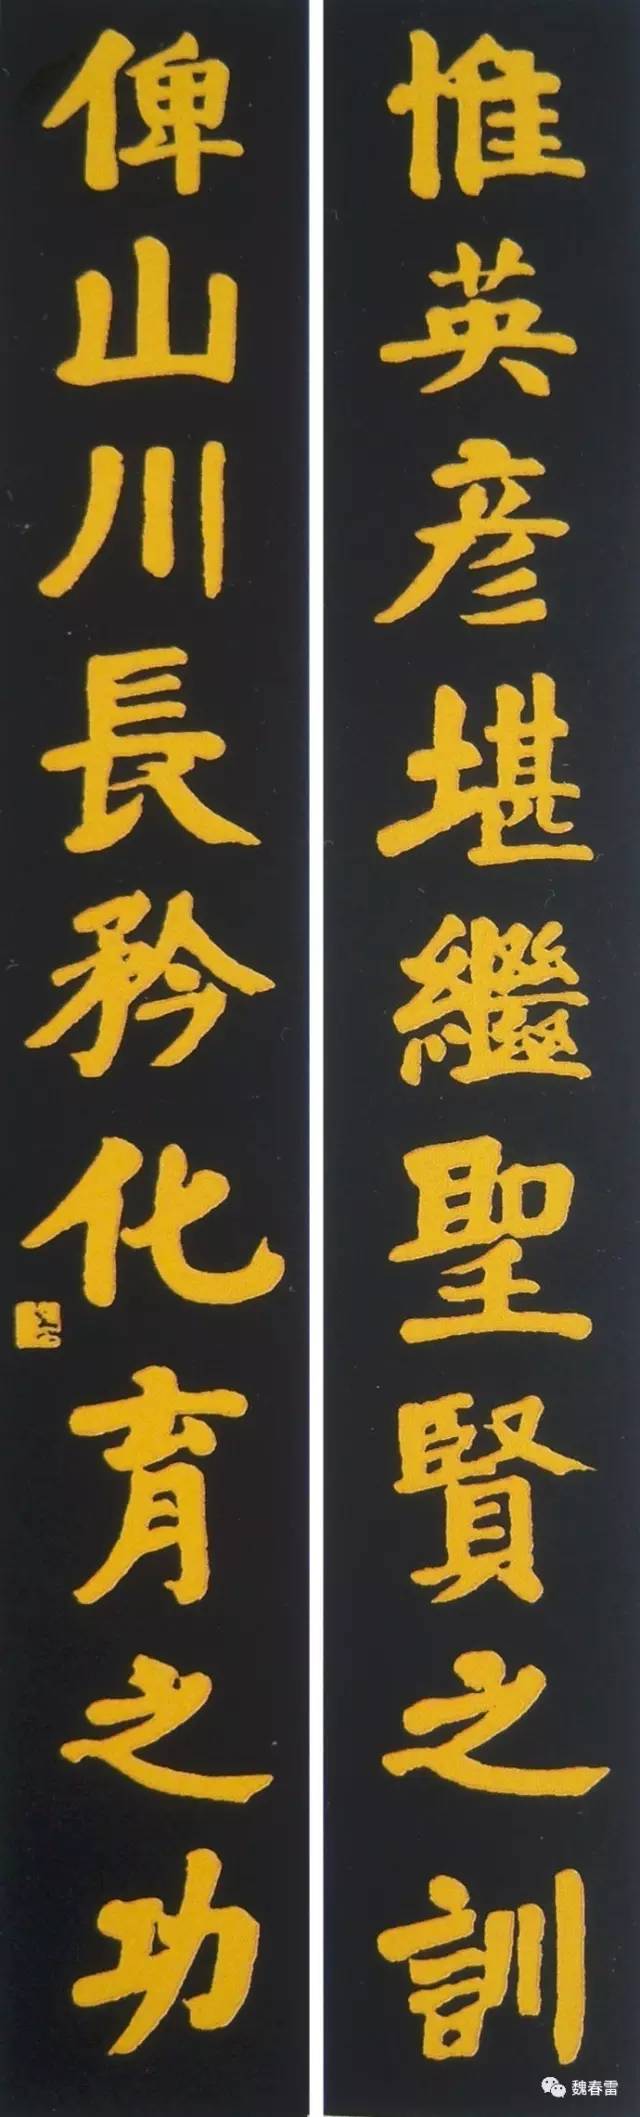 惟英彦堪繼聖賢之訓
俾山川長矜化育之功
魏春雷